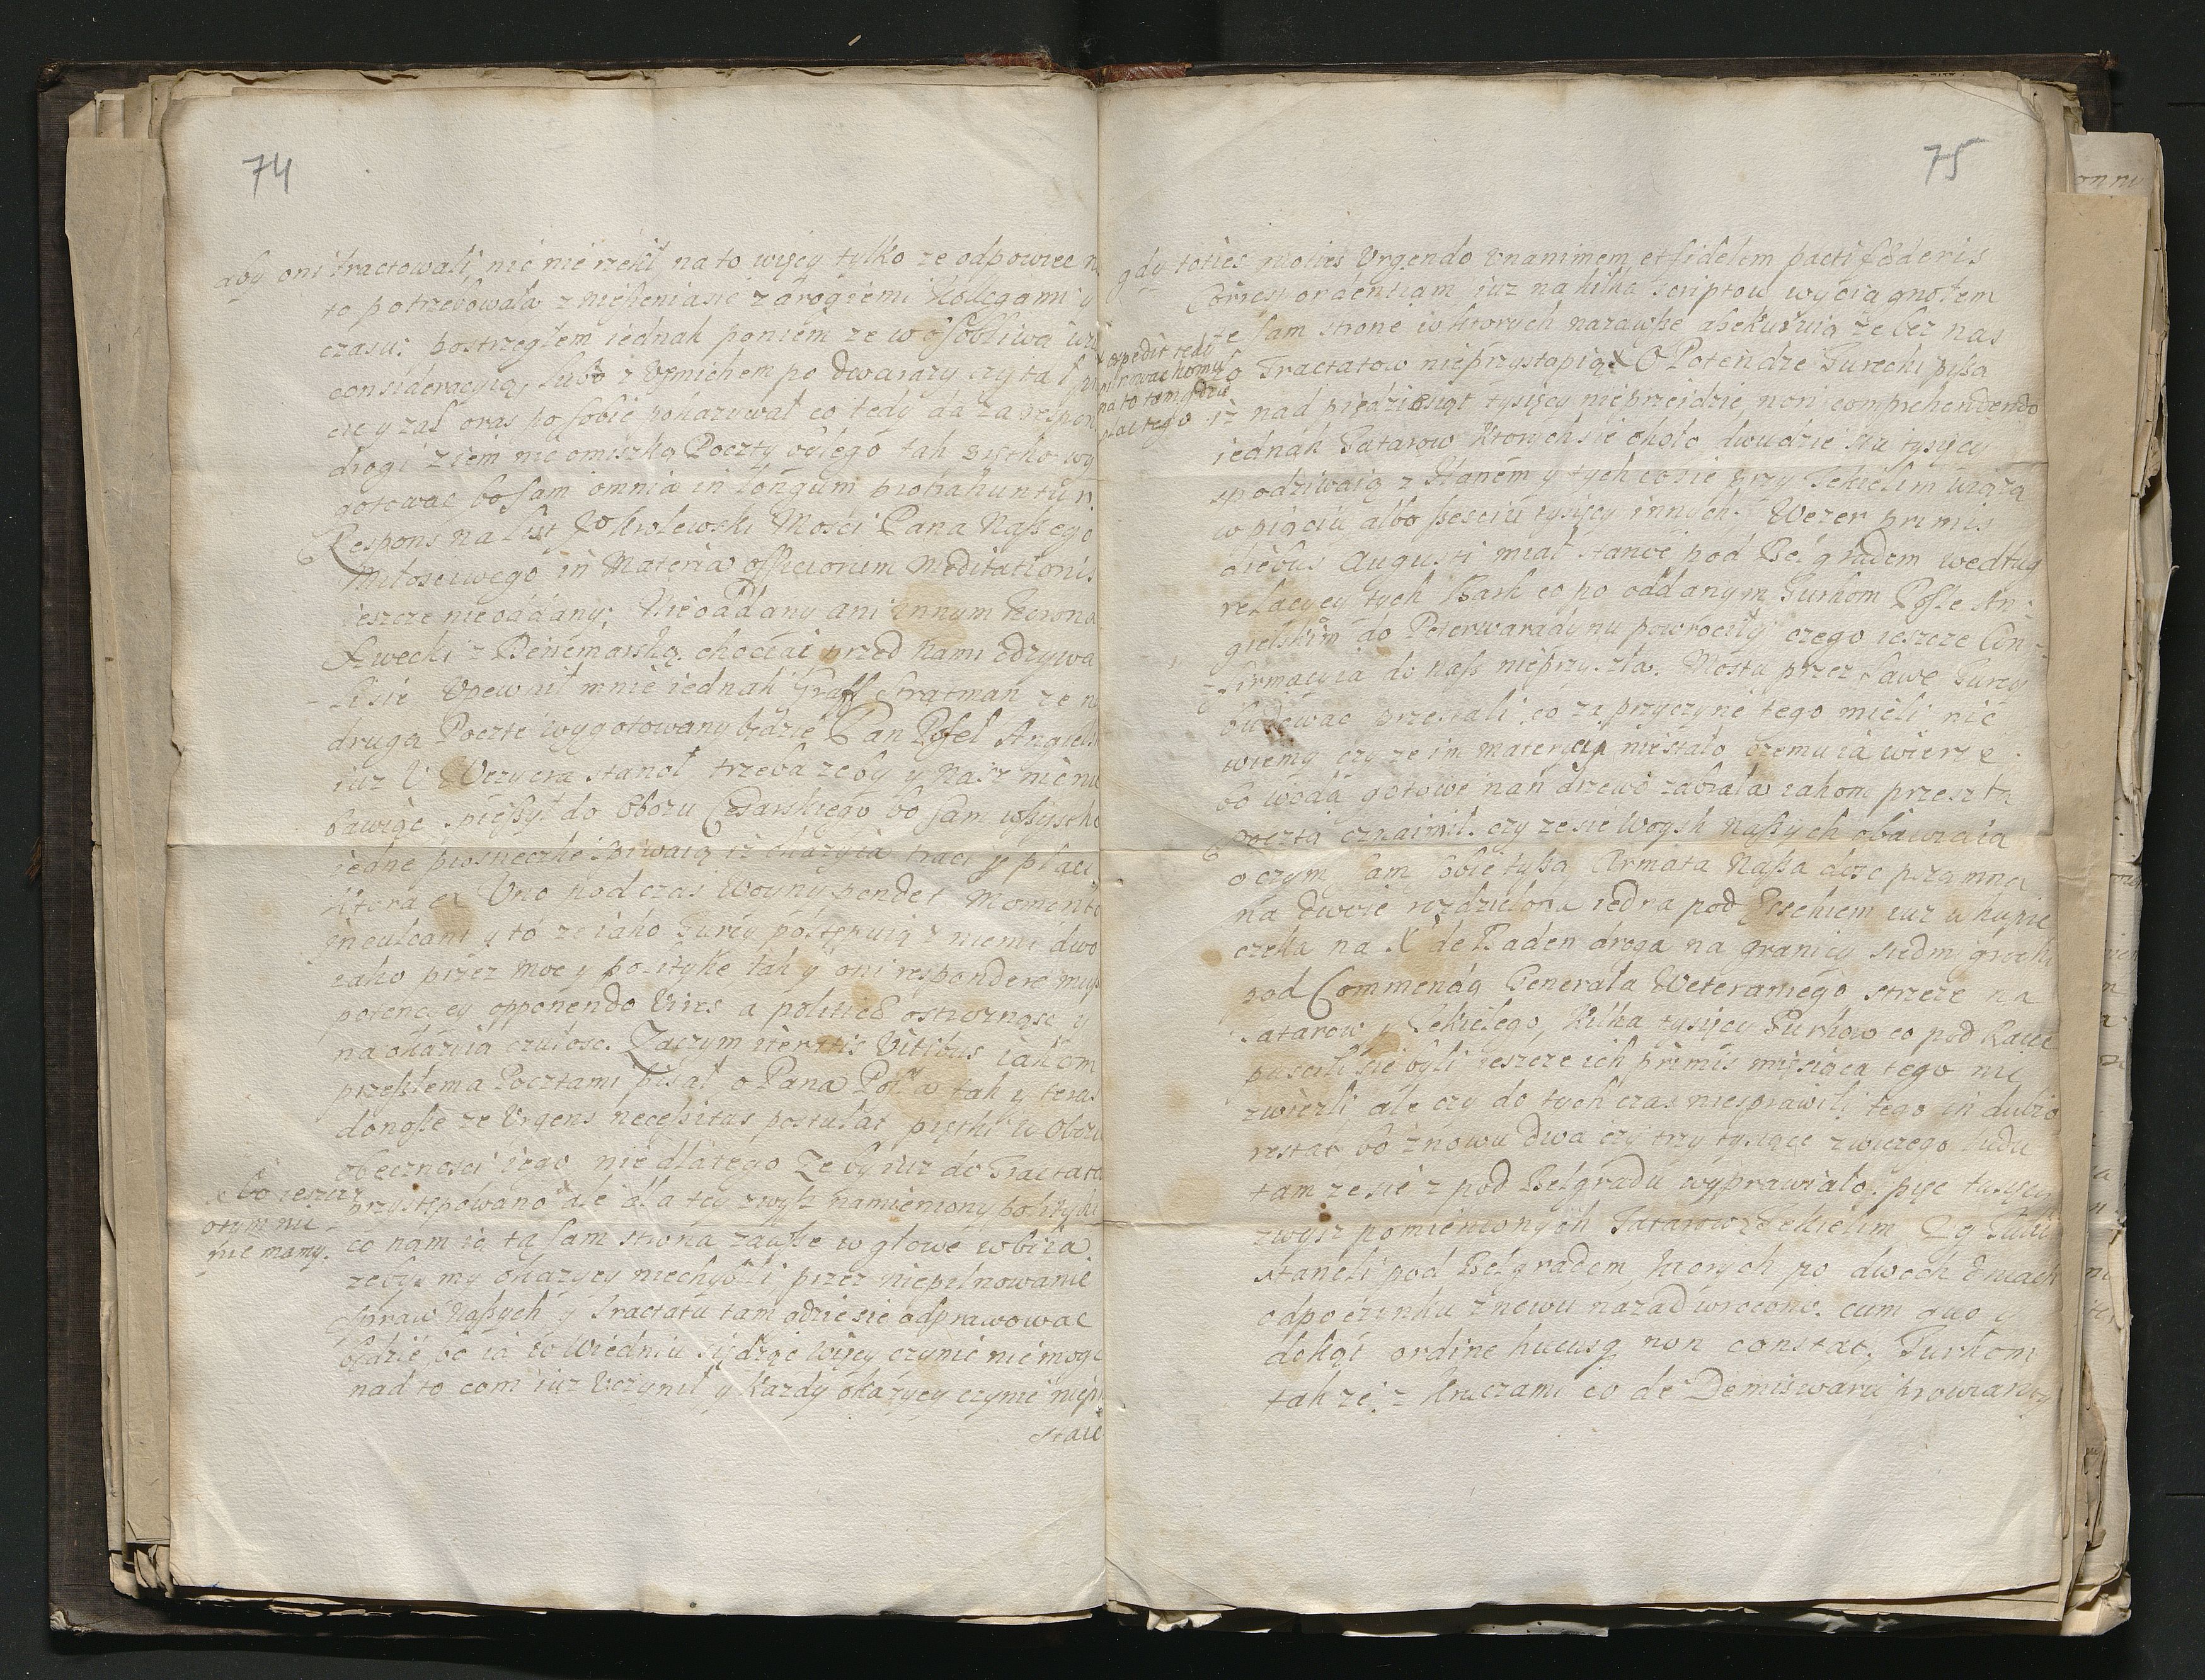 74
aby oni tractowali, nic nie rzekł na to więcy tylko ze odpowiec n
to potrzebowała zniesienia sie z drogiemi Kollegami y
czasu: postrzegłem iednak poniem ze w osobliwą
consideracyią, lubo z Vsmiechem po dwa razy czytał
cie y zas oras po sobie pokazywał co tedy da za respon
drogi ziem nie omiszka Poczty byłego tak wy
gotowac bo sam omnia in longum protrahuntur.
Respons na list Jo Krolewski Mosci Pana Naszego
Miłosciwego in Materia officiorum Meditationis
ieszcze nieoddany; Nieoddany ani innym Korono
Szwecki z Denemarską. chociai przed nami odzywa
li sie Vpewnił mnie iednak Graff Stratman ze n
druga Poczte wygotowany będzie Pan Poseł Angiels
iuz V Wezyera stanoł trzeba zeby y Nasz nie
bawiąc spieszył do Obozu Cesarskiego bo sam wszistki
iedne piosneczkę spiwaią iz okazyia traci y płaci
Ktora ex Vno podczas Woyny pendet Momento
inculcani y to ze iako Turcy postępuią z niemi dwo
iako przez moc y politykę tak y oni respondere musz
potencyey opponendo Vires a politice ostroznosc y
na okazyia czułosc. Zaczym iteratis Vitibus iakom
przeszłema Pocztami pisał o Pana Posła tak y teras
donosze ze Vrgens necessitas postulat prętki w Oboz
obecnosci iego nie dlatego Zeby iuz do Tractatu
x bo ieszcze
otym nic
nie mamy.
przystępowano ale dla tey zwysz namieniony polityki
co nam ia ta sam strona zawsze w głowę wbiia
zebysmy okazyey niechybili przez niepilnowanie
spraw Naszych y Tractatu tam gdzie sie odprawowac
będzie, bo ia w Wiedniu siedząc więcy czynic nie mogę
nad to com iuz Vczynił y Kazdy okazyey czynic niep
staie
75
gdy toties quoties Vrgendo Vnanimem et fidelem pacti foederis
Corresp ordentiam iuz na kilka scriptow wyciągnołem
te sam strone w ktorych nazawsze asekuruią ze bez nas
x expedit tedy
nietrwac homu
na to tam gdzie
plac tego
o Tractatow nieprzystąpią x O Potendze Turecki pisza
iz nad piędziesiąt tysięcy nieprzeidzie, non comprehendendo
iednak Tatarow Ktorych sie około dwudziestu tysięcy
spodziwaią z Hanem y tych co sie przy Tekielim wiążą
w pięciu albo szesciu tysięcy innych. Wezer primis
diebus Augusti miał stanąc pod Belgradem według
relacyey tych Bark co po oddanym Turkom Posle An-
gielskim do Peterwaradynu powrociły czego ieszcze Con-
firmacyia do nasz nieprzyszła. Mostu przez Sawe Turcy
budowac przestali, co za przyczyne tego mieli nic
wiemy czy ze im materyia niestało czemu ia wierze
bo woda gotowe nań drzewo zabrała iakom przeszłą
pocztą oznaimił. czy ze sie Woysk naszych obawiaią
o czym sam obie tyszą Armata Nasza dosc przamna
na dwoie rozdzielona iedna pod Essekiem iuz w kupie
czeka na X de Baden droga na granicy siedmigrocki
pod Commendą Generała Weteraniego, strzeze na
Tatarow y Tekielego, Kilka tysięcy Turkow co pod Kaise
puscili sie byli ieszcze ich primis miesiąca tego nie
zwiezli ale czy do tych czas niesprawili tego in dubio
restat bo znowu dwa czy trzy tysiące zwiezego ludu
tam ze sie z pod Belgradu wyprawiało. pięc tysięcy
zwysz pomienionych Tatarow z Tekielim 29 Julii
staneli pod Belgradem, ktorych po dwoch dniach
odpoczynku znowu nazad wrocono. cum quo y
dokąt ordine hucusq non constat. Turkom
takze z kruczami co de Demiswaru prowianty